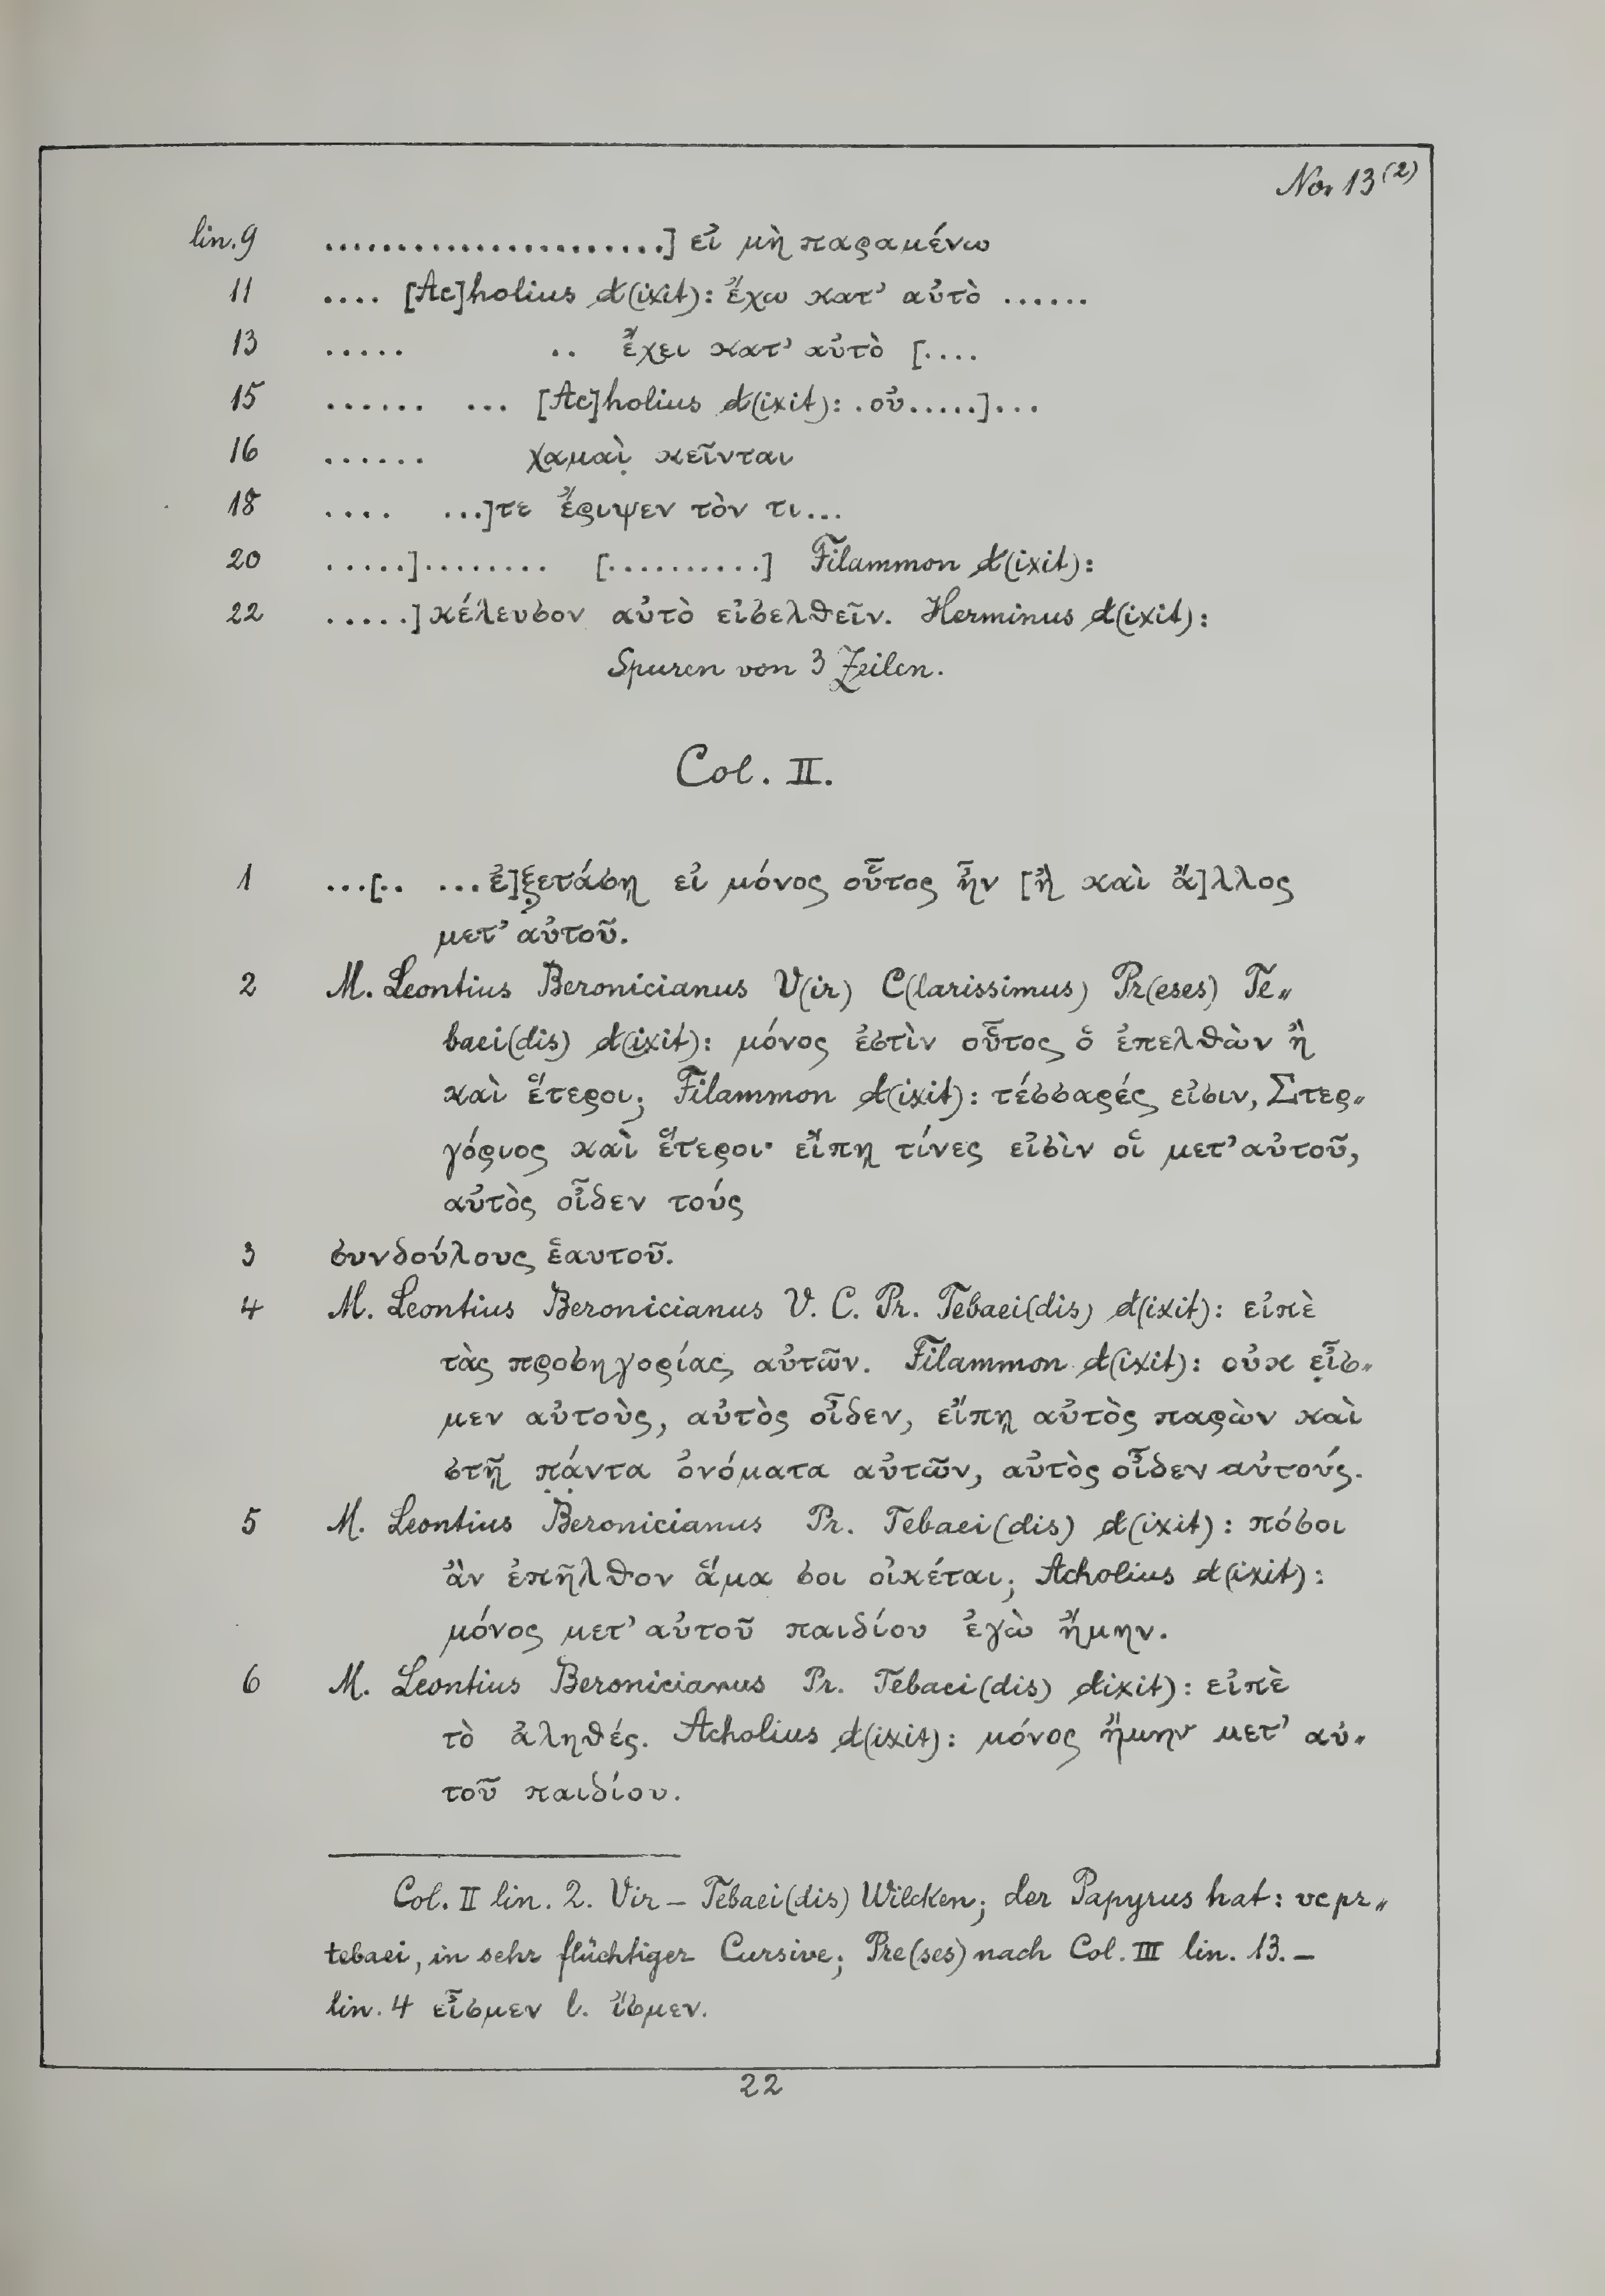 No. 13 (2)
lin. 9 .......................] εἰ μὴ παραμένω
11 .... [Ac]holius d(ixit): ἔχω κατ’ αὐτὸ ......
13 ..... .. ἔχει κατ’ αὐτὸ [....
15 ...... ... [Ac]holius d(ixit): .οὐ.....]...
16 ...... χαμαὶ̣ κεῖνται
18 .... ...]τε ἔριψεν τὸν τι...
20 .....]........ [..........] Filammon d(ixit):
22 .....] κέλευσον αὐτὸ εἰσελθεῖν. Herminus d(ixit):
Spuren von 3 Zeilen.
Col. II.
1 ...[.. ...ἐ]ξ̣ετάσῃ εἰ μόνος οὗτος ἦν [ἢ καὶ ἄ]λλος
μετ’ αὐτοῦ.
2 M. Leontius Beronicianus V(ir) C(larissimus) Pr(eses) Te〃
baei(dis) d(ixit): μόνος ἐστὶν οὗτος ὁ ἐπελθὼν ἢ
καὶ ἕτεροι; Filammon d(ixit): τέσσαρές εἰσιν, Στερ〃
γόριος καὶ ἕτεροι· εἴπῃ τίνες εἰσὶν οἱ μετ’ αὐτοῦ,
αὐτὸς οἶδεν τούς
3 συνδούλους ἑαυτοῦ.
4 M. Leontius Beronicianus V. C. Pr. Tebaei(dis) d(ixit): εἰπὲ
τὰς προσηγορίας αὐτῶν. Filammon d(ixit): οὐκ ε̣ἶσ〃
μεν αὐτοὺς, αὐτὸς οἶδεν, εἴπῃ αὐτὸς παρὼν καὶ
στῇ π̣ά̣ντα ὀνόματα αὐτῶν, αὐτὸς οἶδεν αὐτούς.
5 M. Leontius Beronicianus Pr. Tebaei(dis) d(ixit): πόσοι
ἂν ἐπῆλθον ἅμα σοι οἰκέται; Acholius d(ixit):
μόνος μετ’ αὐτοῦ παιδίου ἐγὼ ἤμην.
6 M. Leontius Beronicianus Pr. Tebaei(dis) dixit): εἰπὲ
τὸ ἀληθές. Acholius d(ixit): μόνος ἤμην μετ’ αὐ〃
τοῦ παιδίου.
Col. II lin. 2. Vir – Tebaei(dis) Wilcken; der Papyrus hat: vcpr〃
tebaei, in sehr flüchtiger Cursive; Pre(ses) nach Col. III lin. 13. –
lin. 4 εἶσμεν l. ἴσμεν.
22